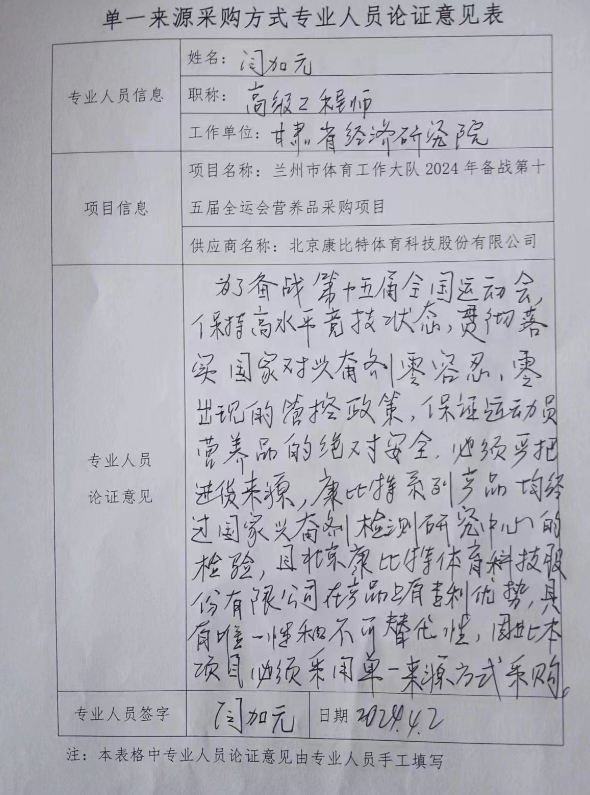 单一来源采购方式专业人员论证意见表
专业人员信息
姓名：闫加元
职称：高级工程师
工作单位：甘肃省经济研究院
项目信息
项目名称：兰州市体育工作大队2024年备战第十
五届全运会营养品采购项目
供应商名称：北京康比特体育科技股份有限公司
专业人员
论证意见
为了备战第十五届全国运动会，
保持高水平竞技状态，贯彻落
实国家对兴奋剂零容忍、零
出现的管控政策，保证运动员
营养品的绝对安全，必须严把
进货来源，康比特系列产品均经
过国家兴奋剂检测研究中心的
检验，且北京康比特体育科技股
份有限公司在产品上有专利优势，具
有唯一性和不可替代性，因此本
项目必须采用单一来源方式采购。
专业人员签字 闫加元 日期 2024.4.2
注：本表格中专业人员论证意见由专业人员手工填写